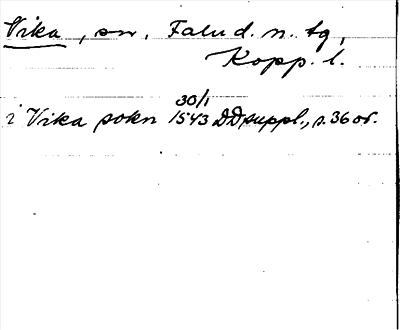 Vika, sn, Falu d. n. tg,
Kopp. l.
30/1
i Vika sokn 1543 DD suppl., s. 36 or.